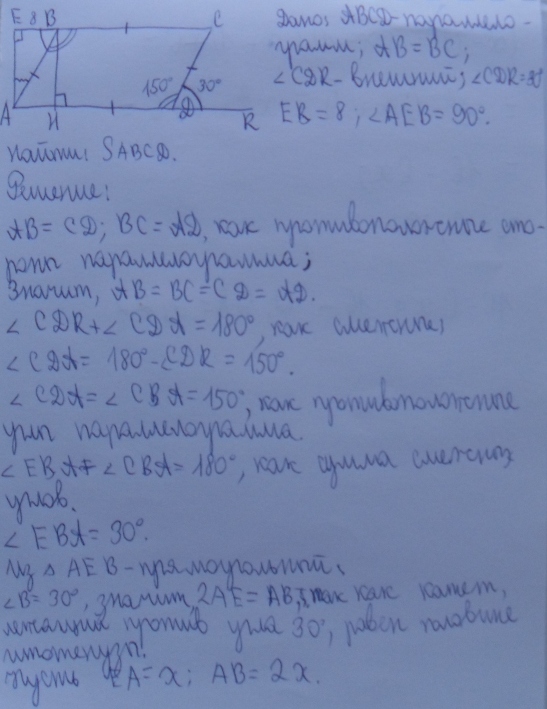 E 8 B C
150° 30°
A H D R
Дано: ABCD - параллело-
грамм; AB = BC;
∠CDR - внешний; ∠CDR = 30°
EB = 8; ∠AEB = 90°.
Найти: SABCD.
Решение:
AB = CD; BC = AD, как противоположные сто-
роны параллелограмма;
Значит, AB = BC = CD = AD.
∠ CDR + ∠ CDA = 180°, как смежные;
∠ CDA = 180° - CDR = 150°.
∠ CDA = ∠ CBA = 150°, как противоположные
углы параллелограмма.
∠ EBA + ∠ CBA = 180°, как сумма смежных
углов.
∠ EBA = 30°.
Из △ AEB - прямоугольный,
∠B = 30°, значит 2AE = AB, так как катет,
лежащий против угла 30°, равен половине
гипотенузы.
Пусть EA = x; AB = 2x.